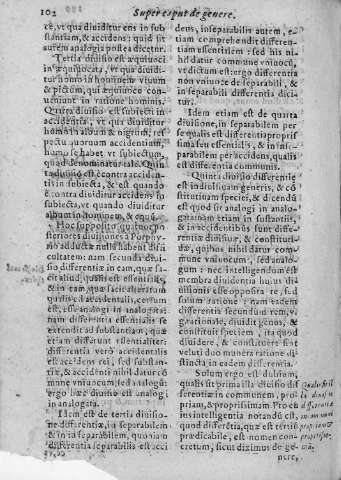 102 Super caput de genere.
ce, vt qua diuiditur ens in sub
stantiam, & accidens: quid sit
autem analogia postea dicetur.
Tertia diuisio est æquiuoci
in æquiuocata, vt qua diuiditur
homo in hominem viuum
& pictum, qui æquiuoce con-
ueniunt in ratione hominis.
Quarta diuisio est subiecti in
accidentia, vt qua diuiditur
homo in album & nigrum, res-
pectu quorum accidentium,
homo se habet vt subiectum,
quod denominatur tale. Quin
ta diuisio est è contra acciden-
tis in subiecta, & est quando
è contra diuiditur accidens in
subiecta, vt quando diuiditur
album in hominem, & equũ.
Hoc supposito quatuor po
steriores diuisiones à Porphy-
rio adductæ nulla habent diffi
cultatem: nam secunda diui-
sio differentiæ in eam, quæ fa-
cit aliud, qualis est essentialis,
& in eam quæ facit alterum
qualis est accidentalis, certum
est, esse analogi in analogata:
differentia essentialis se
extendit ad substantiam, &
etiam differunt essentialiter:
differentia verò accidentalis
est accidens rei, sed substan-
tiæ, & accidenti nihil datur cõ
mune vniuocum, sed analogũ:
ergo illa diuisio est analogi
in analogata.
Idem est de tertia diuisio-
ne differentiæ, in separabilem
& in separabilem, quoniam
differentia separabilis est acci-
deus, inseparabilis autem, e-
tiam comprehendit differen-
tiam essentialem: sed his nil
datur commune vniuocũ, vt
dictum est: ergo differentia
non vniuoce de separabili, &
in separabili differentia dici-
tur.
Idem etiam est de quarta
diuisione, in separabilem per
se qualis est differentia propris
sima seu essentialis, & in inse-
parabilem per accidens, qualis
est differentia communis.
Quinta diuisio differentiæ
est in diuisiuam generis, & cõ
stitutiuam speciei, & dicendũ
est quod sit analogi in analo-
gata: nam etiam in sustantiis,
& in accidentibus sunt diffe-
rentiæ diuisiuæ, & constituti-
uæ, quibus nihil datur com-
mune vniuocum, sed analo-
gum: nec intelligendum est
membra diuidentia huius di-
uisionis esse opposita re, sed
solum ratione: nam eadem
differentia secundum rem, vt
rationale, diuidit genus, &
constituit speciem, ita quod
diuidere, & constituere sunt
veluti duo munera ratione di
stincta in eadem differentia.
Solum ergo est dubium,
qualis sit prima illa diuisio dif
ferentiæ in communem, pro
priam, & propriissimam. Pro cu
ius intelligentia notandũ est,
quod differẽtia, quæ est tertiũ
prædicabile, est nomen con-
cretum, sicut diximus de ge-
nere,